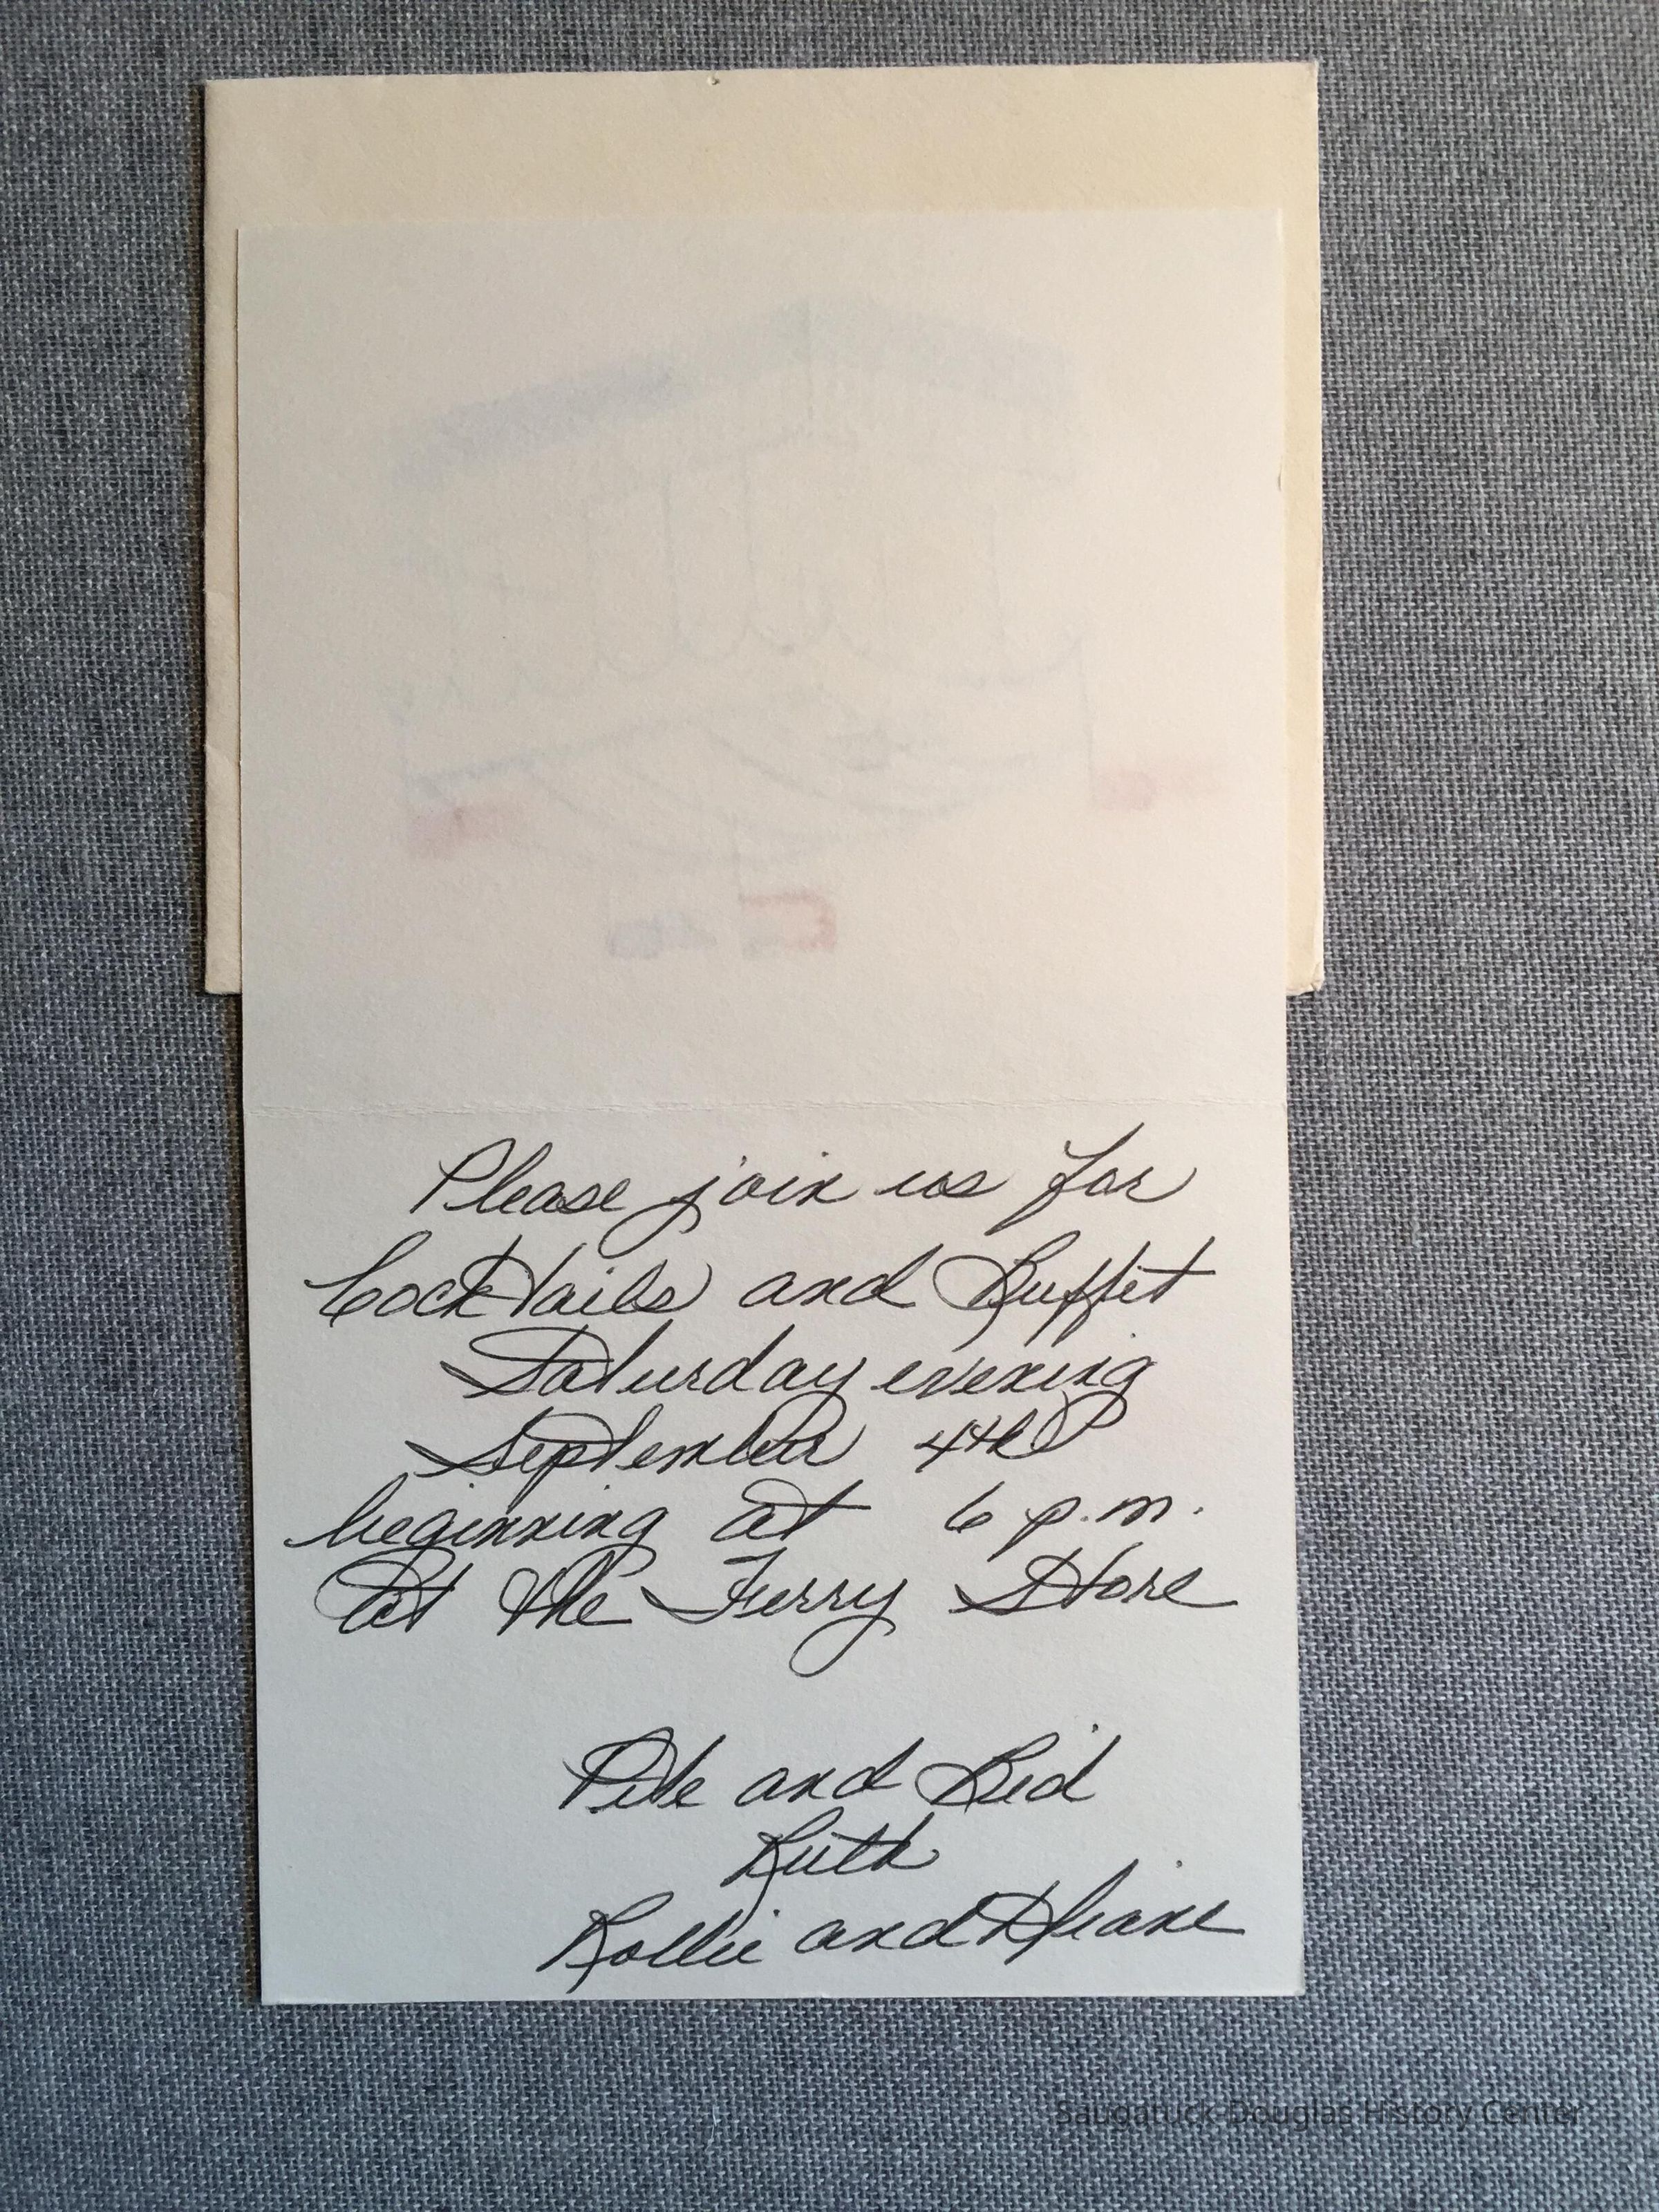 Please join us for
Cocktails and Buffet
Saturday evening
September 4th
beginning at 6 p.m.
At the Ferry Store
Pete and Bid
Ruth
Rollie and Diane
Saugatuck-Douglas History Center